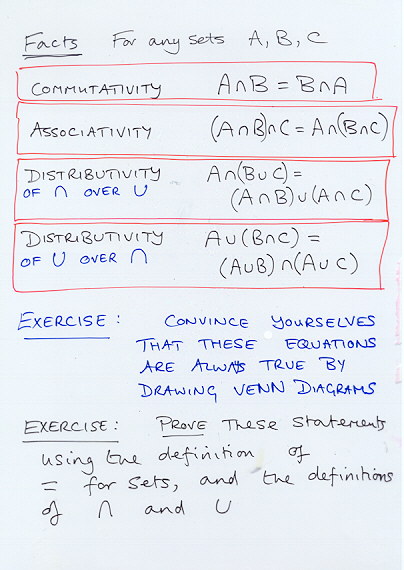 Facts For any sets A, B, C
COMMUTATIVITY A∩B = B∩A
ASSOCIATIVITY (A∩B)∩C = A∩(B∩C)
DISTRIBUTIVITY A∩(B∪C) =
OF ∩ OVER ∪ (A∩B)∪(A∩C)
DISTRIBUTIVITY A∪(B∩C) =
OF ∪ OVER ∩ (A∪B)∩(A∪C)
EXERCISE: CONVINCE YOURSELVES
THAT THESE EQUATIONS
ARE ALWAYS TRUE BY
DRAWING VENN DIAGRAMS
EXERCISE: PROVE These Statements
using the definition of
= for sets, and the definitions
of ∩ and ∪